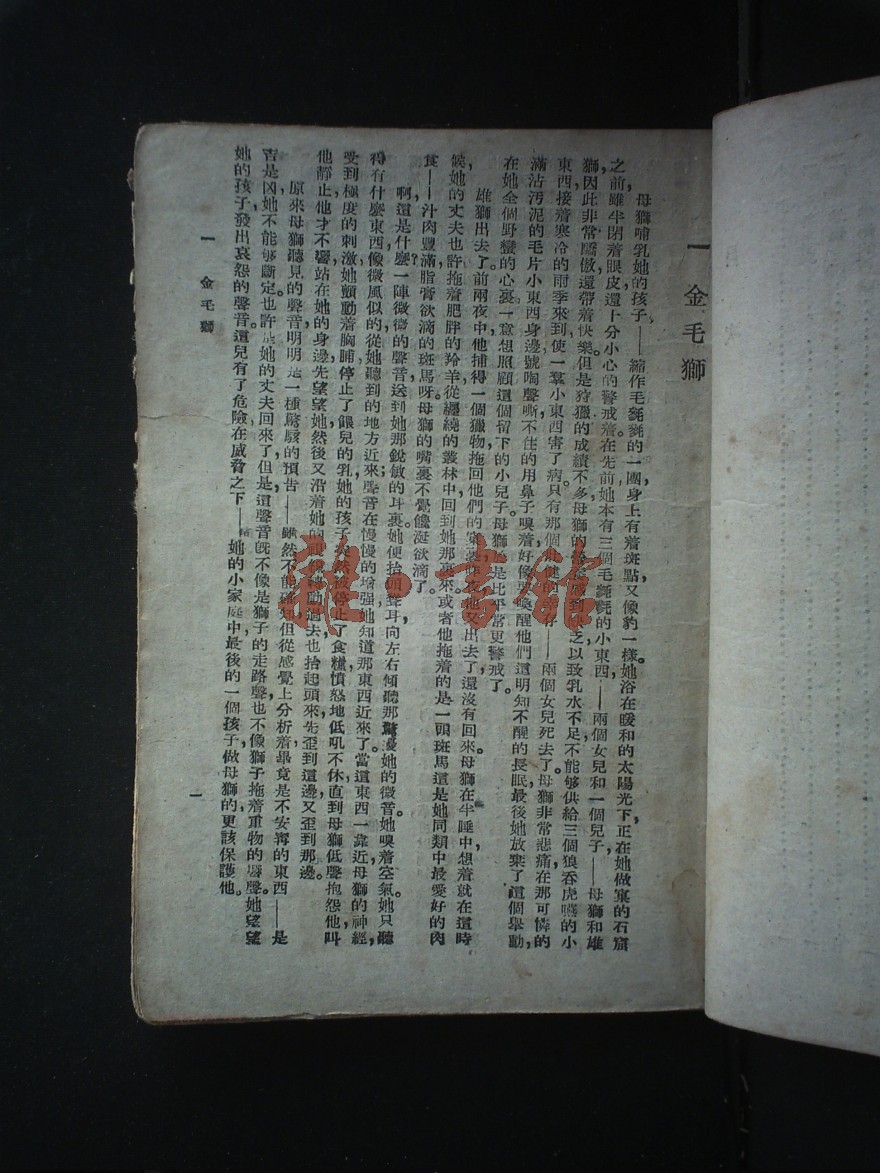 一 金毛獅
母獅哺乳她的孩子——縮作毛毿毿的一團，身上有着斑點，又像豹一樣。她浴在暖和的太陽光下，正在她做窠的石窟
之前，雖半閉着眼皮，還十分小心的警戒着。在先前，她本有三個毛毿毿的小東西——兩個女兒和一個兒子——母獅和雄
獅，因此非常驕傲，還帶着快樂。但是狩獵的成績不多，母獅的營養感到缺乏，以致乳水不足，不能够供給三個狼吞虎嚥的小
東西。接着寒冷的雨季來到，使一羣小東西害了病。只有那個——兩個女兒死去了。母獅非常悲痛，在那可憐的
滿沾汚泥的毛片小東西身邊號啕，聲嘶不住的用鼻子嗅着，好像要喚醒他們這明知不醒的長眠。最後她放棄了這個舉動，
在她全個野蠻的心裏，一意想照顧這個留下的小兒子。母獅於是比平常更警戒了。
雄獅出去了。前兩夜中，他捕得一個獵物，拖回他們的窠裏，昨夜他又出去了，還沒有回來。母獅在半睡中，想着就在這時
候，她的丈夫也許拖着肥胖的羚羊，從繩繞的叢林中回到她那裏來。或者他拖着的是一頭斑馬，這是她同類中最愛好的肉
食——汁肉豐滿脂膏欲滴的斑馬呀！母獅的嘴裏不覺饞涎欲滴了。
啊，這是什麼？一陣微微的聲音送到她那銳敏的耳裏。她便抬頭聳耳，向左右傾聽那驚擾她的微音。她嗅着空氣。她只聽
得有什麼東西像微風似的從她聽到的地方近來，聲音在慢慢的增强；她知道那東西近來了。當這東西一靠近，母獅的神經，
受到極度的刺激，她顫動着胸脯，停止了餵兒的乳。她的孩子突然被停止了食糧，憤怒地低吼不休，直到母獅低聲抱怨，他叫
他靜止，他才不響，站在她的身邊，先望望她，然後又沿着她的眼睛轉動過去，也抬起頭來，先歪到這邊，又歪到那邊。
原來母獅聽見的聲音，明明是一種驚駭的預告——雖然不能確知，但從感覺上分析着，畢竟是不安甯的東西——是
吉是凶，她不能够斷定。也許是她的丈夫回來了，但是這聲音旣不像是獅子的走路聲，也不像獅子拖着重物的聲。她望望
她的孩子，發出哀怨的聲音。這兒有了危險在威脅之下——她的小家庭中最後的一個孩子，做母獅的更該保護他。
一 金毛獅
一
雜·書館